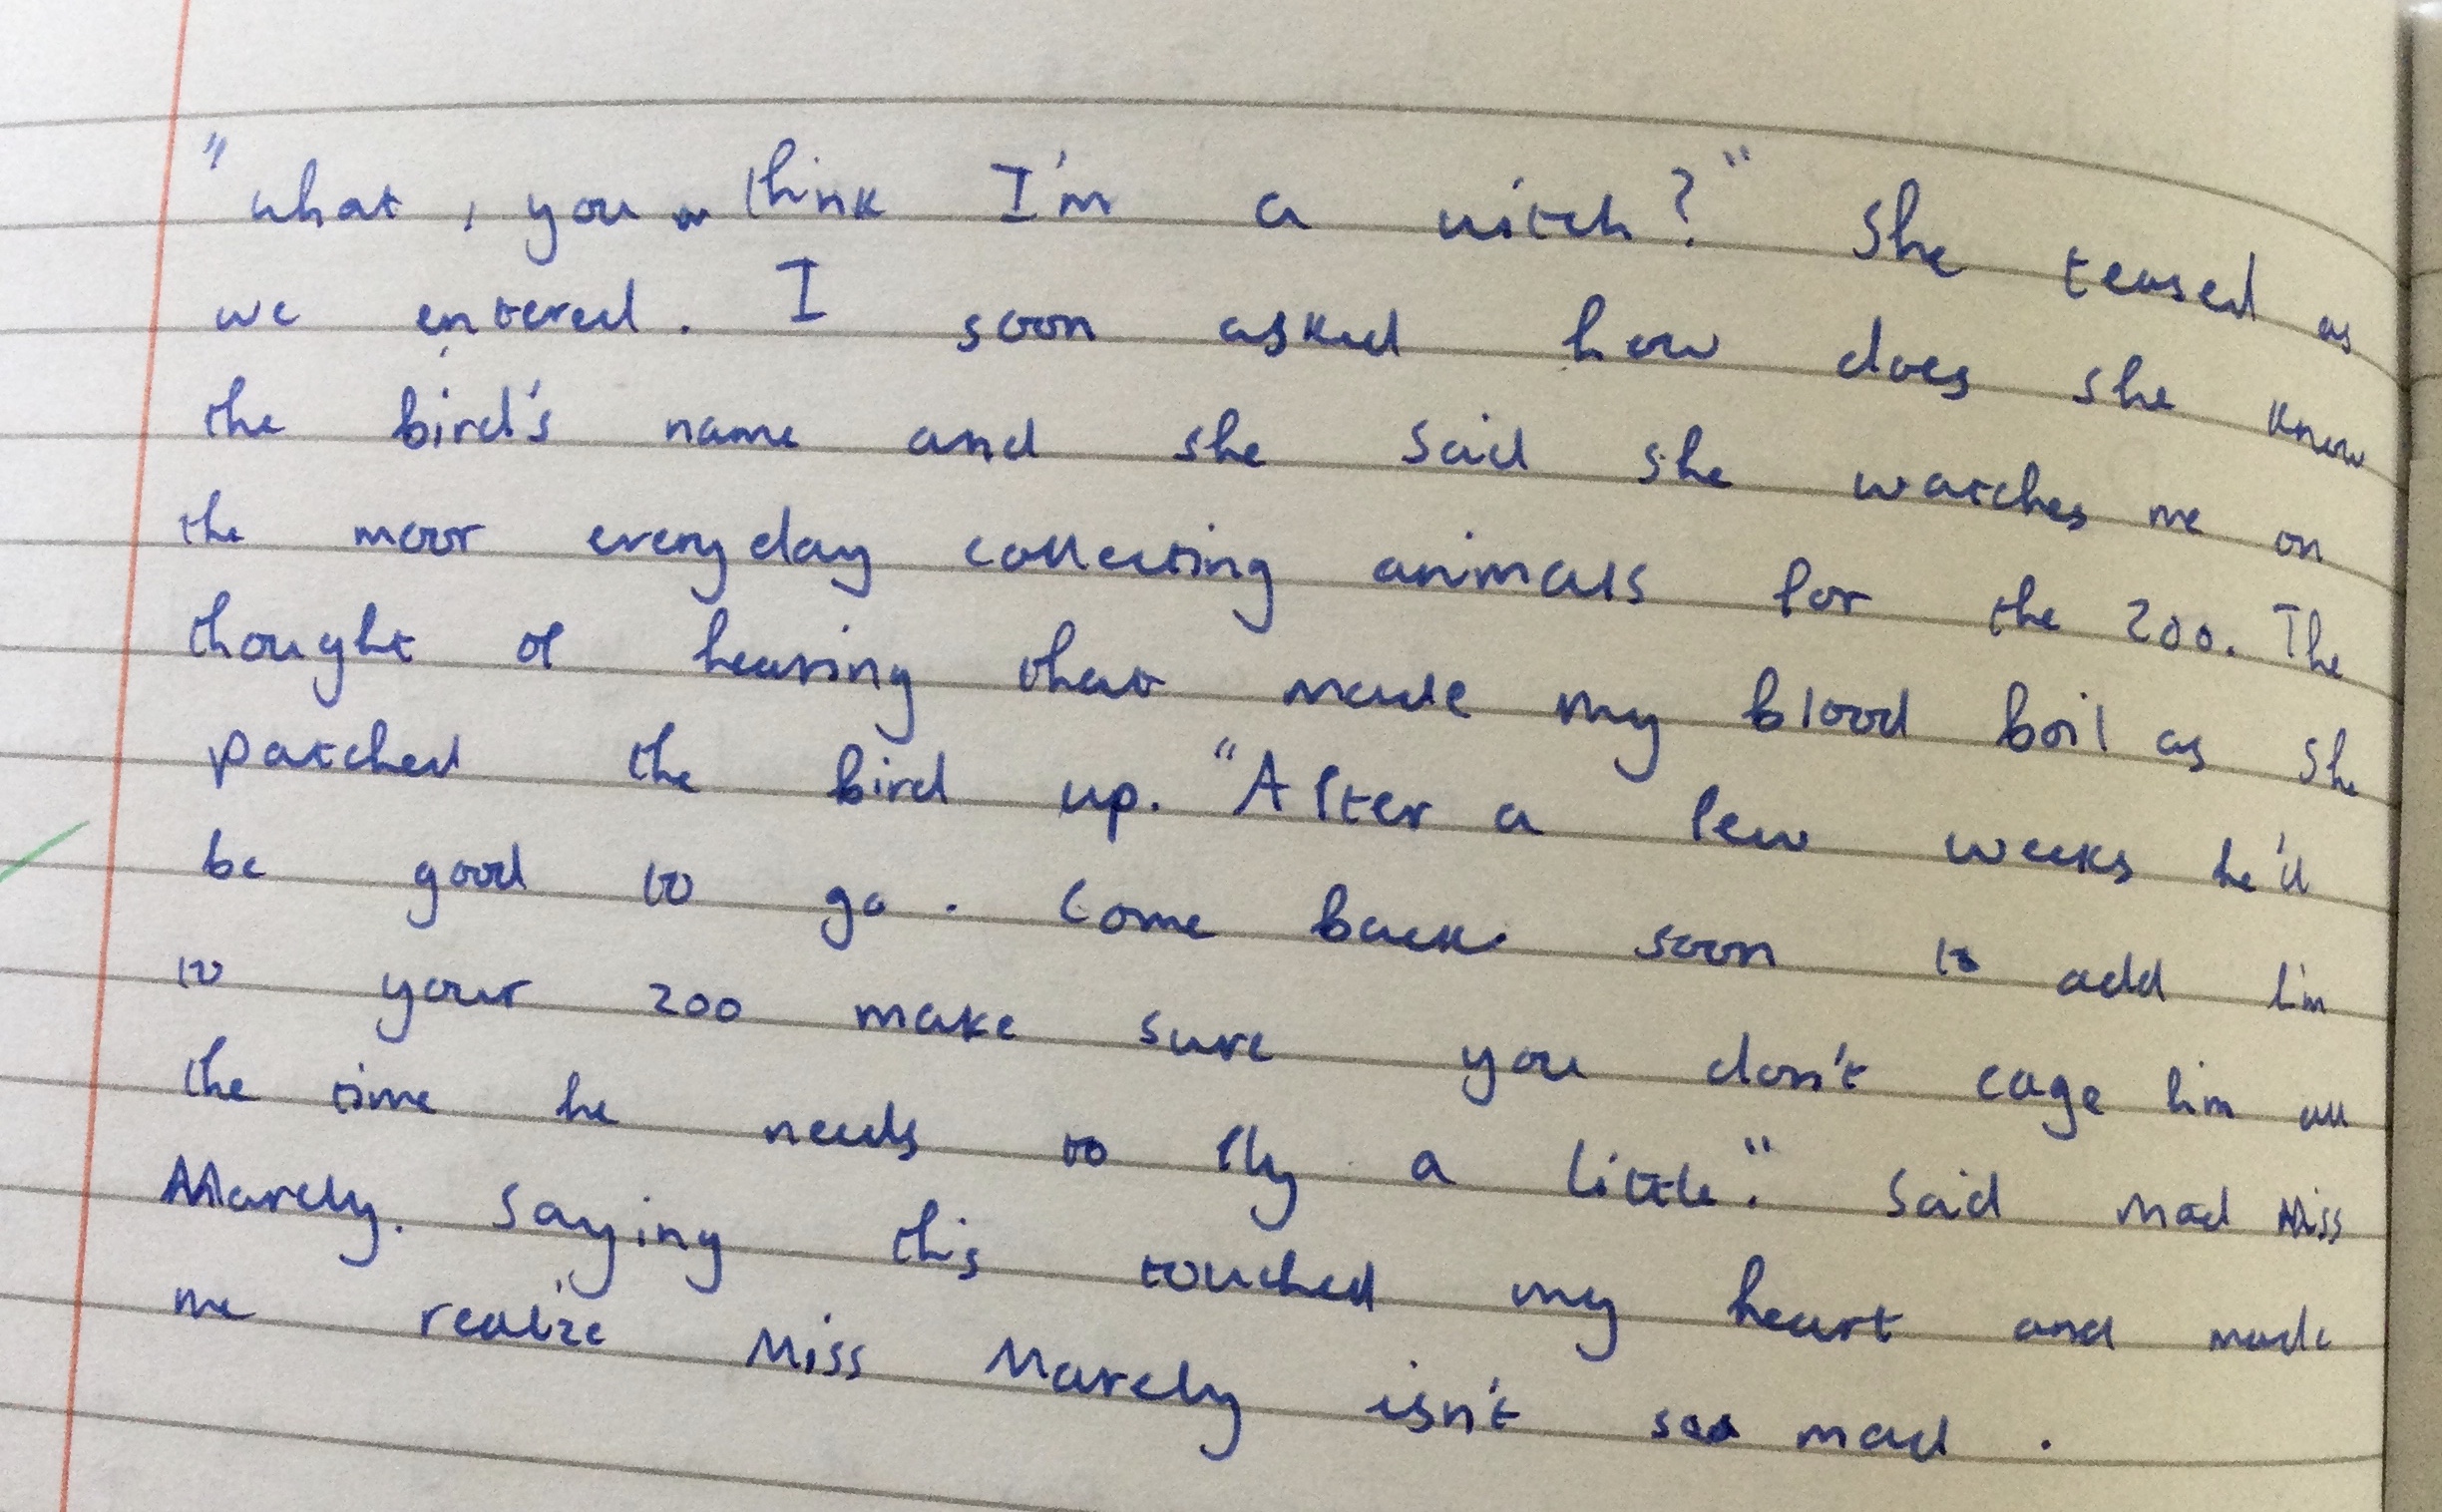 "what, you think I'm a witch?" She teased as
we entered. I soon asked how does she know
the bird's name and she said she watches me on
the moor everyday collecting animals for the zoo. The
thought of hearing that made my blood boil as she
patched the bird up. "After a few weeks he'd
be good to go. Come back soon to add him
to your zoo make sure you don't cage him all
the time he needs to fly a little." said mad Miss
Marcly. Saying this touched my heart and made
me realize Miss Marcly isn't so mad.